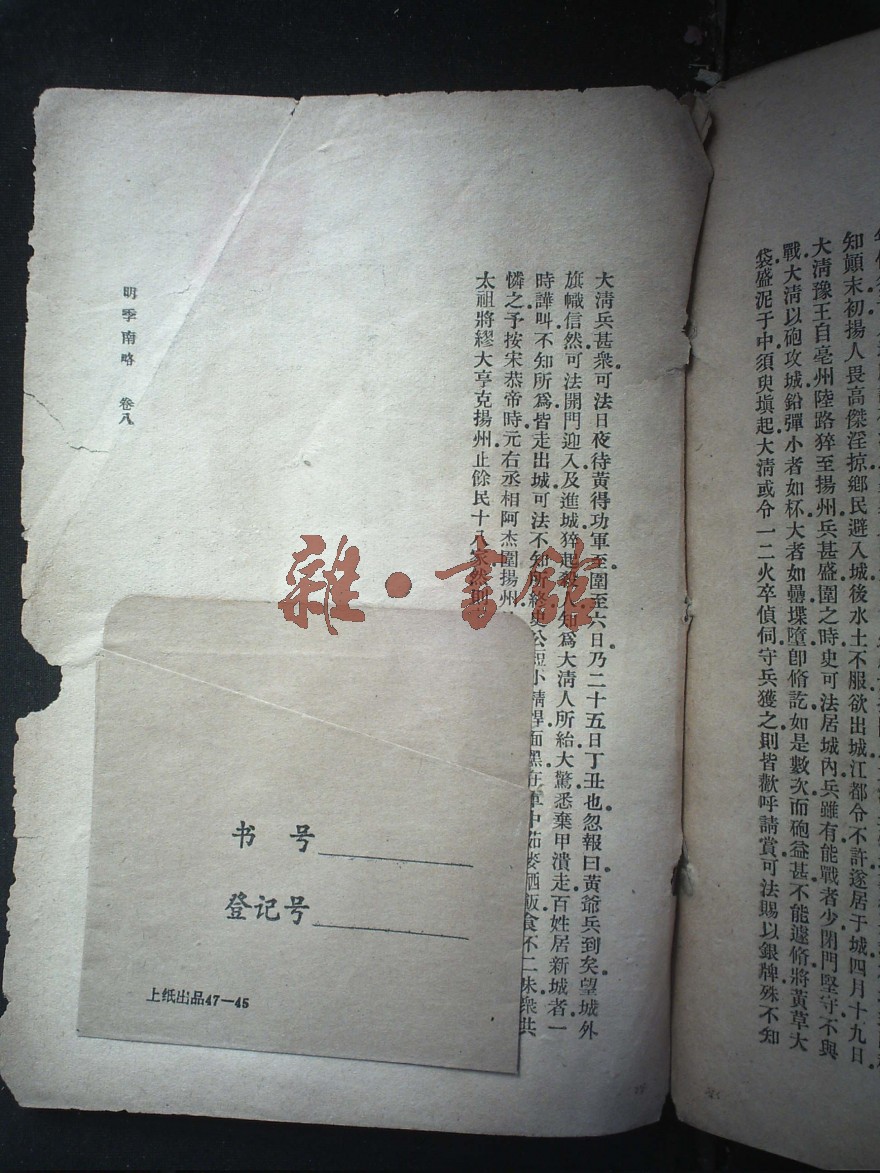 知顛末初揚人畏高傑淫掠鄉民避入城後水土不服欲出城江都令不許遂居于城四月十九日
大清豫王自亳州陸路猝至揚州兵甚盛圍之時史可法居城內兵雖有能戰者少閉門堅守不與
戰大清以砲攻城鉛彈小者如杯大者如罍堞墮卽脩訖如是數次而砲益甚不能遽脩將黃草大
袋盛泥于中須臾塡起大清或令一二火卒偵伺守兵獲之則皆歡呼請賞可法賜以銀牌殊不知
大清兵甚衆可法日夜待黃得功軍至圍至六日乃二十五日丁丑也忽報曰黃爺兵到矣望城外
旗幟信然可法開門迎入及進城猝起殺人知爲大清人所紿大驚悉棄甲潰走百姓居新城者一
時譁叫不知所爲皆走出城可法不知所終史公短小精悍面黑在軍中茹麥陋飯食不二味衆共
憐之予按宋恭帝時元右丞相阿杰圍揚州
太祖將繆大亨克揚州止餘民十八家然則
明季南略 卷八
雜·書館
书号
登记号
上纸出品47—45